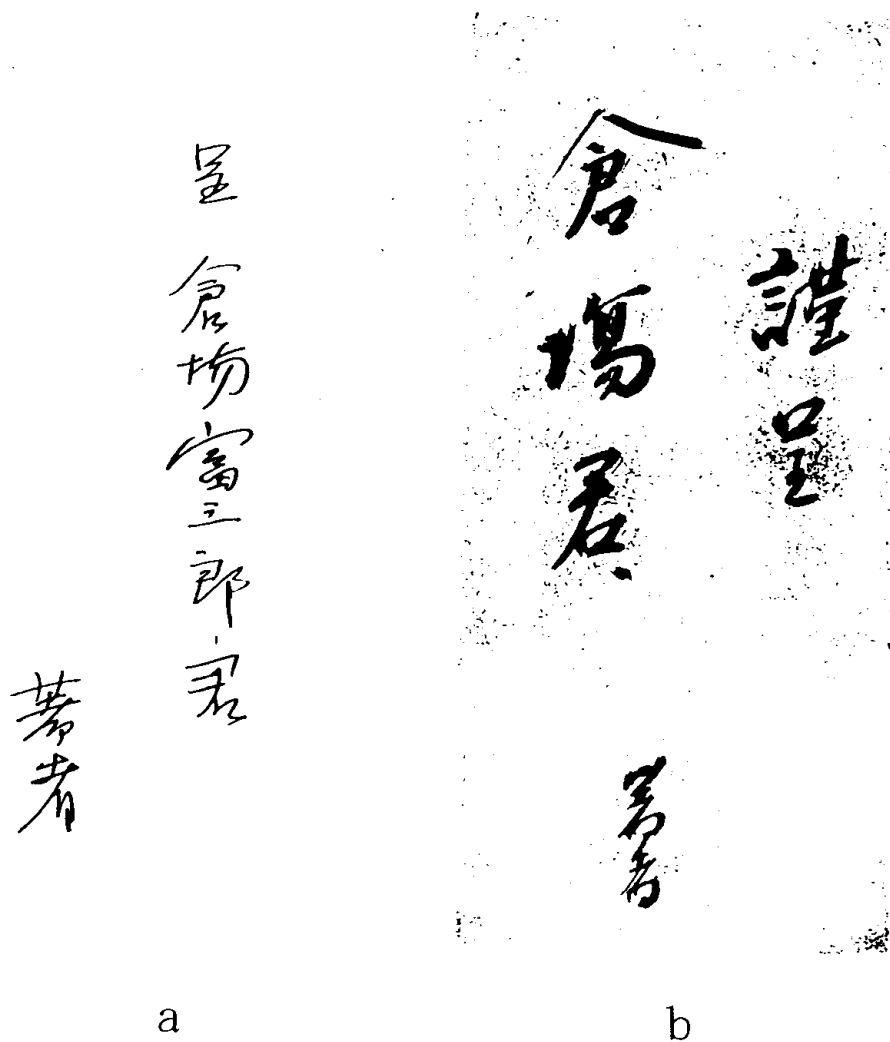 呈 倉場富三郎君
著者
a
謹呈
倉場君
著者
b